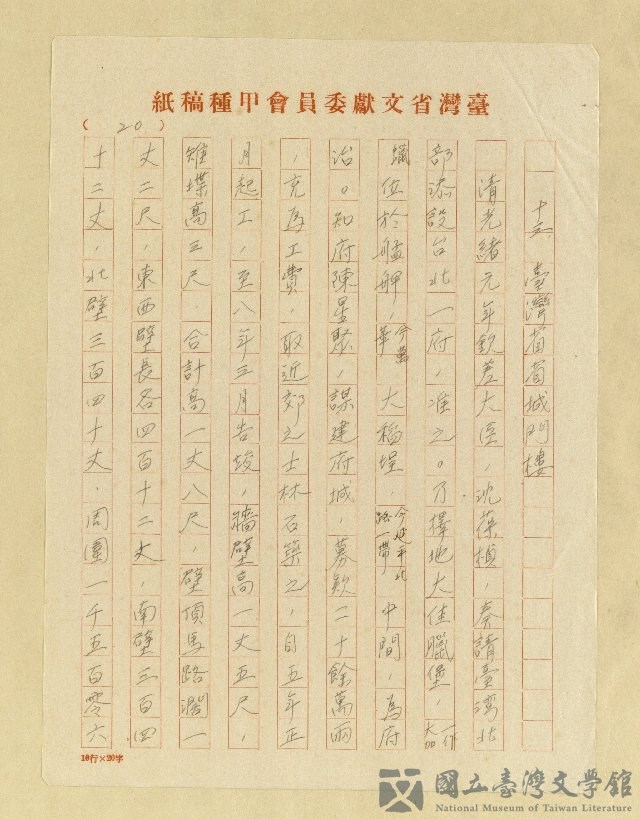 臺灣省文獻委員會甲種稿紙
( 20 )
十三、臺灣省省城門樓
清光緒元年欽差大臣，沈葆楨，奏請臺湾北
部添設台北一府，准之。乃擇地大佳臘堡，一作大加
蚋位於艋舺，今萬華大稻埕，今延平北路一帶中間，為府
治。知府陳星聚，謀建府城，募款二十餘萬兩
，充為工費，取近郊之士林石築之，自五年正
月起工，至八年三月告竣，牆壁高一丈五尺，
雉堞高三尺，合計高一丈八尺，壁頂馬路濶一
丈二尺，東西壁長各四百十二丈，南壁三百四
十二丈，北壁三百四十丈，周圍一千五百零六
10行×20字
國立臺灣文學館
National Museum of Taiwan Literature